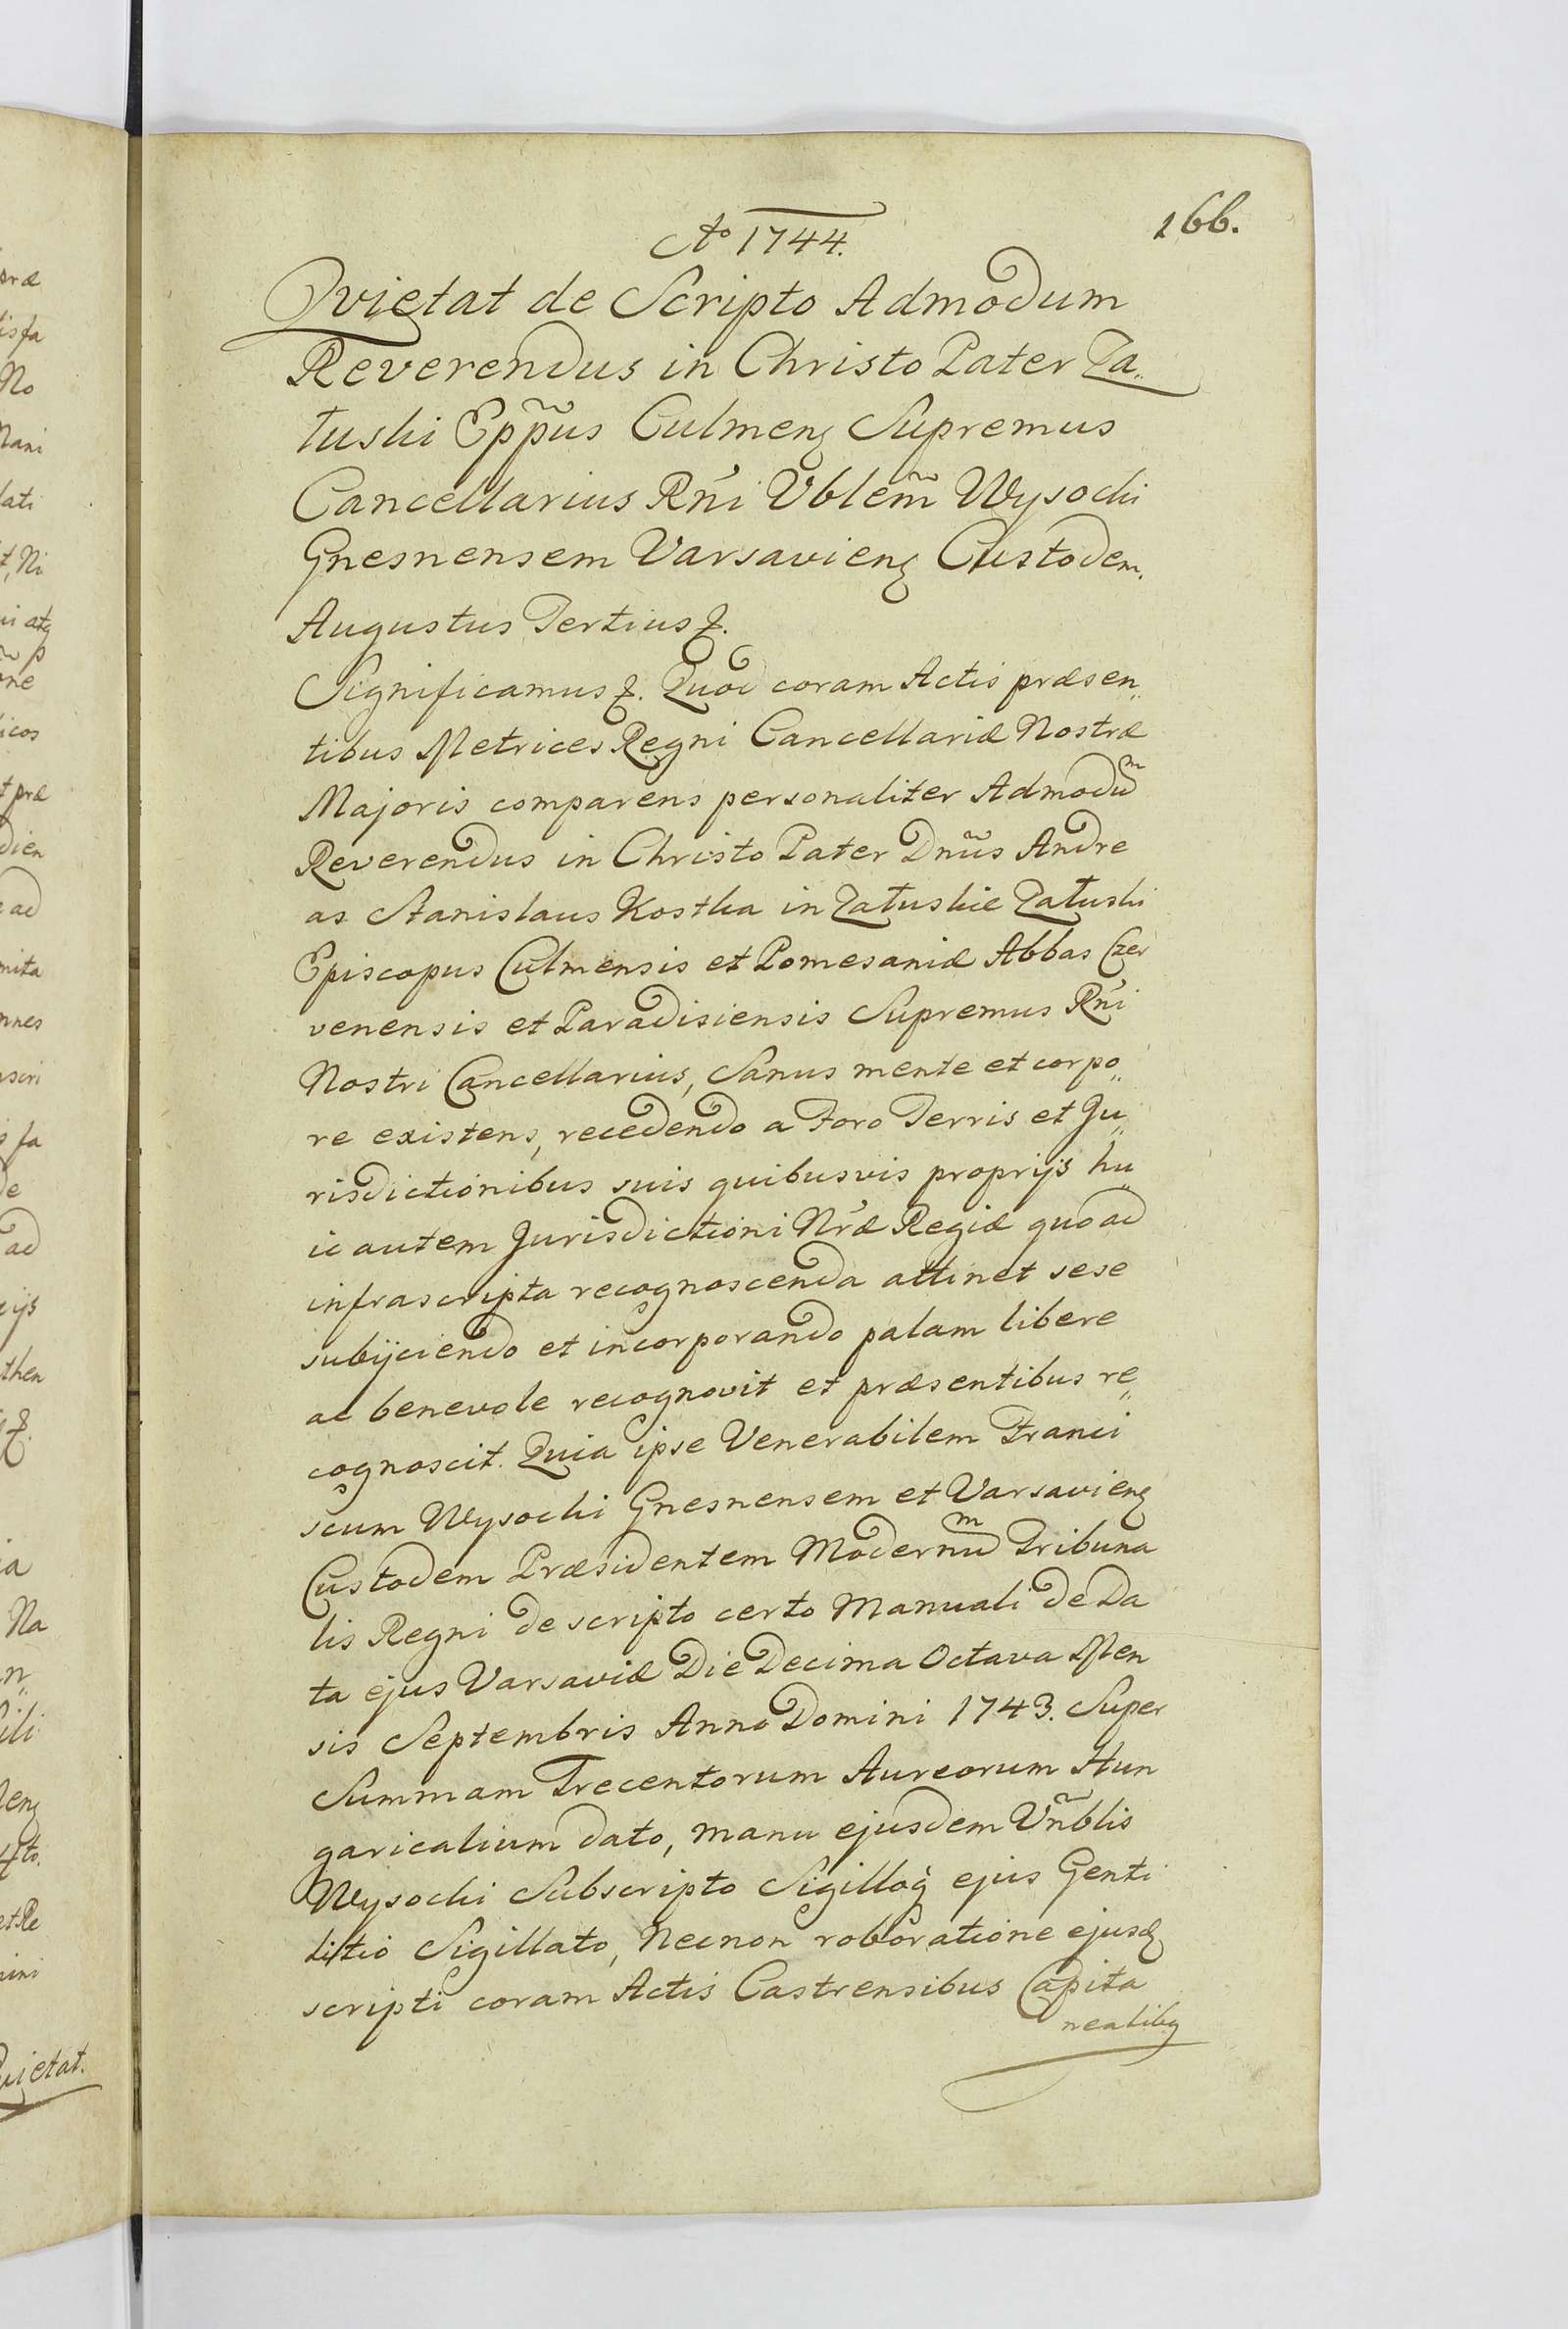 166.
Ao 1744.
Qvietat de Scripto Admodum
Reverendus in Christo Pater Za„
łuski Epp̃us Culmenꝫ Supremus
Cancellarius Rńi Vblem̃ Wysocki
Gnesnensem Varsavienꝫ Custodem.
Augustus Tertius ꝛ.
Significamus ꝛ. Quod coram Actis præsen„
tibus Metrices Regni Cancellariæ Nostræ
Majoris comparens personaliter Admodũm
Reverendus in Christo Pater Dnũs Andre
as Stanislaus Kostka in Załuskie Załuski
Episcopus Culmensis et Pomesaniæ Abbas Czer
venensis et Paradisiensis Supremus Rńi
Nostri Cancellarius, Sanus mente et corpo„
re existens, recedendo a Foro Terris et Ju„
risdictionibus suis quibusvis proprijs hu„
ic autem Jurisdictioni Nŕæ Regiæ quoad
infrascripta recognoscenda attinet sese
subijciendo et incorporando palam libere
ac benevole recognovit et præsentibus re„
cognoscit. Quia ipse Venerabilem Franci
scum Wysocki Gnesnensem et Varsavienꝫ
Custodem Præsidentem Modernũm Tribuna
lis Regni de scripto certo Manuali de Da
ta ejus Varsaviæ Die Decima Octava Men
sis Septembris Anno Domini 1743. Super
Summam Trecentorum Aureorum Hun
garicalium dato, manu ejusdem Vñblis
Wysocki Subscripto Sigilloq̀ ejus Genti
litio Sigillato, Necnon roboratione ejusđ
scripti coram Actis Castrensibus Capita
nealibꝫ